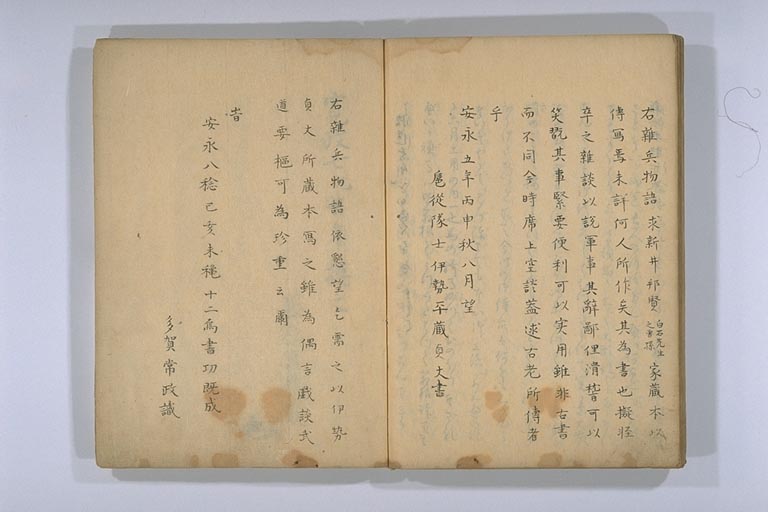 右雜兵物語求新井邦賢白石先生之曾孫家蔵本以
傳写焉未詳何人所作矣其為書也擬軽
卒之雜談以説軍事其辭鄙俚滑稽可以
笑翫其事緊要便利可以実用雖非古書
而不同今時席上空談蓋逑古老所傳者
乎
安永五年丙申秋八月望
扈從隊士伊勢平蔵貞丈書
右雜兵物語依懇望乞需之以伊勢
貞丈所蔵本寫之雖為偶言戯談武
道要樞可為珍重云爾
旹
安永八稔己亥末穐十二蔦書功既成
多賀常政識